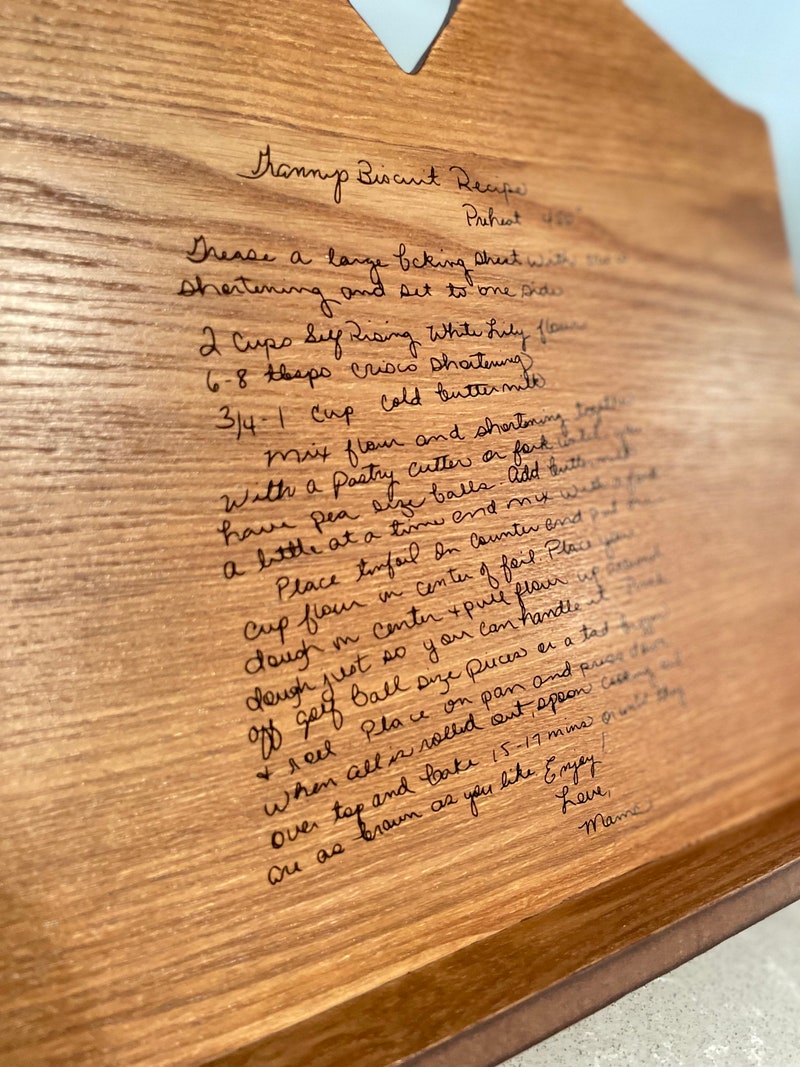 Grannys Biscuit Recipe
Preheat 450°
Grease a large baking sheet with
shortening and set to one side
2 Cups Self Rising White Lily flour
6-8 tbsps crisco shortening
3/4-1 cup cold buttermilk
mix flour and shortening together
with a pastry cutter or fork until you
have pea size balls. add buttermilk
a little at a time and mix with a fork
Place tinfoil on counter and put one
cup flour in center of foil. Place your
dough in center + pull flour up around
dough just so you can handle it
off golf ball size pieces or a tad bigger
+ roll Place on pan and press down
When all is rolled out, spoon
over top and bake 15-17 mins or until they
are as brown as you like Enjoy!
Love,
Mama